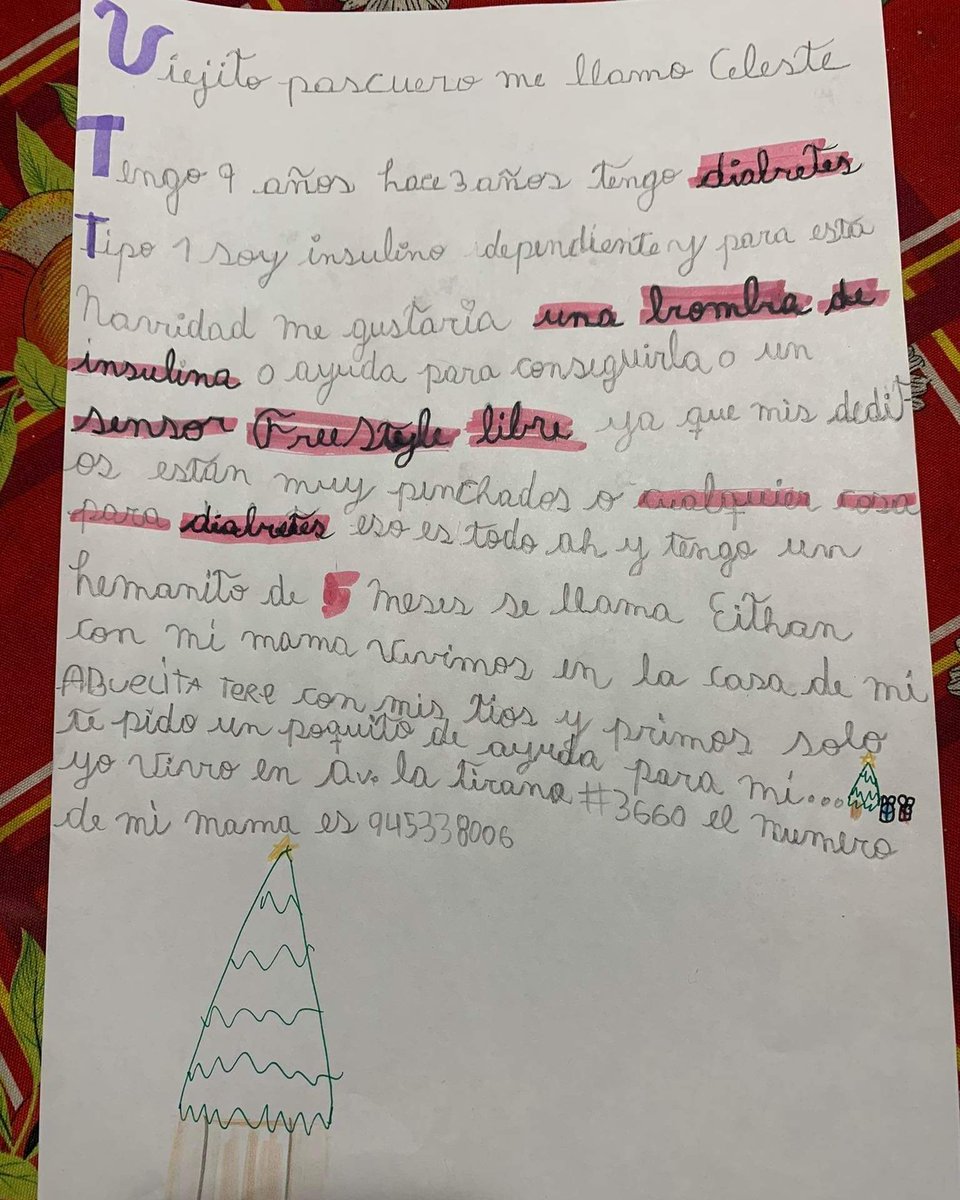 Viejito pascuero me llamo Celeste
Tengo 9 años hace 3 años tengo diabretes
Tipo 1 soy insulino dependiente y para esta
Navidad me gustaria una bromba de
insulina o ayuda para conseguirla o un
sensor FreeStyle libre ya que mis dedit
os están muy pinchados o cualquier cosa
para diabretes eso es todo ah y tengo un
hemanito de 5 meses se llama Eithan
con mi mama vivimos en la casa de mi
ABUELITA TERE con mis tios y primos solo
te pido un poquito de ayuda para mi...
yo vivro en Av. la tirana #3660 el numero
de mi mama es 945338006